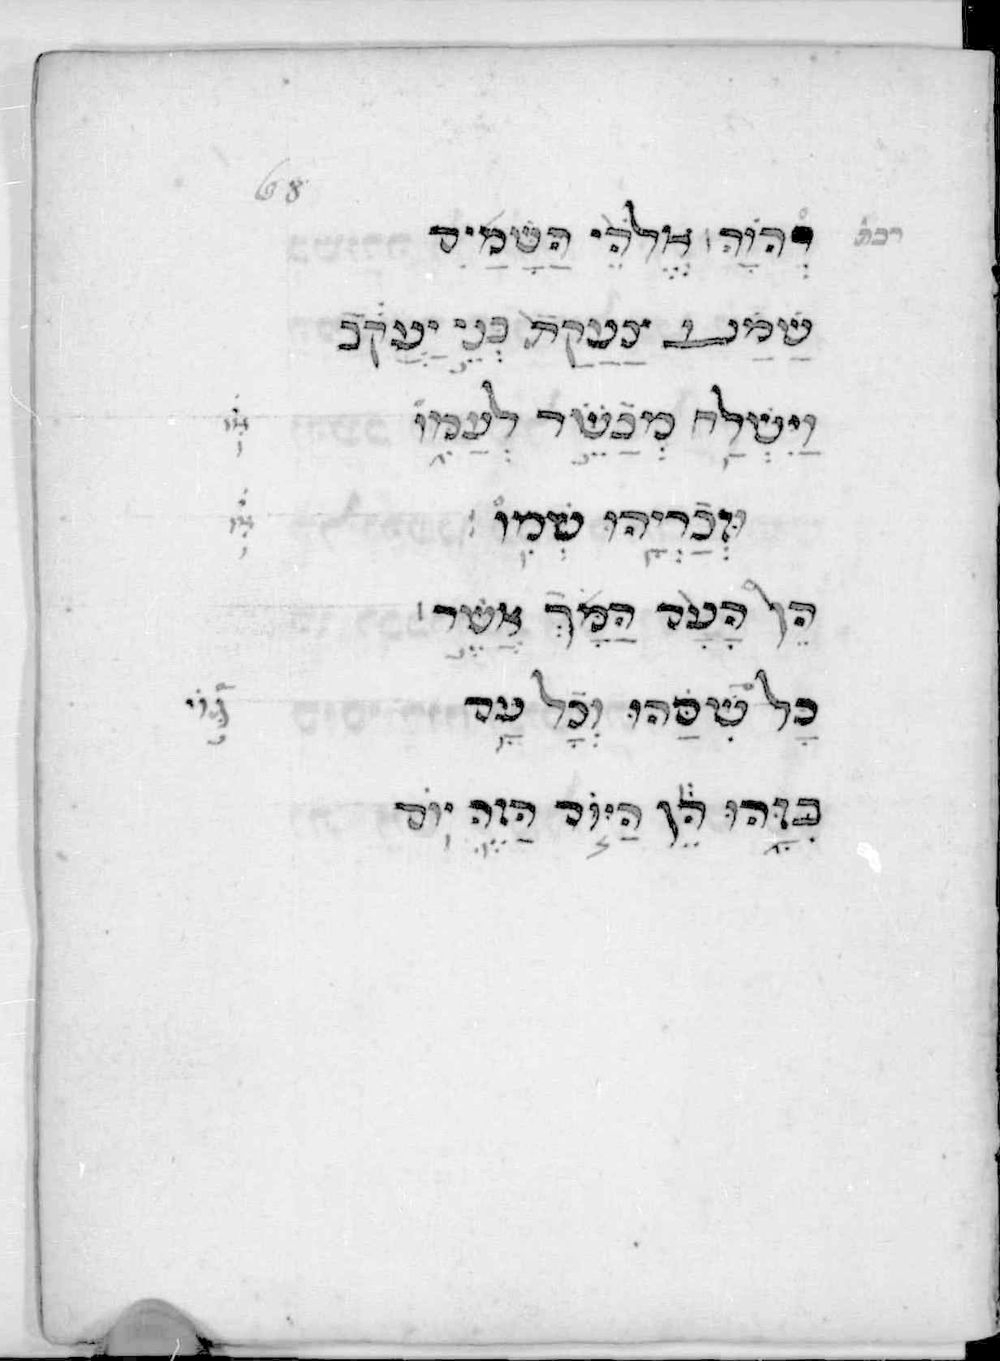 68
יְהוָֹה אֱלֹהֵי הַשָּׁמַיִם
שָׁמַע צַעֲקַת בְּנֵי יַעֲקֹב
וַיִּשְׁלַח מְבַשֵּׂר לְעַמּוֹ
זְכַרְיָהוּ שְׁמוֹ
הֵן הָעָם הַמָּךְ אֲשֶׁר
כָל שִׁסַּהוּ וְכָל עָם
בִּזָּהוּ הֵן הַיּוֹם הַזֶּה יוֹם